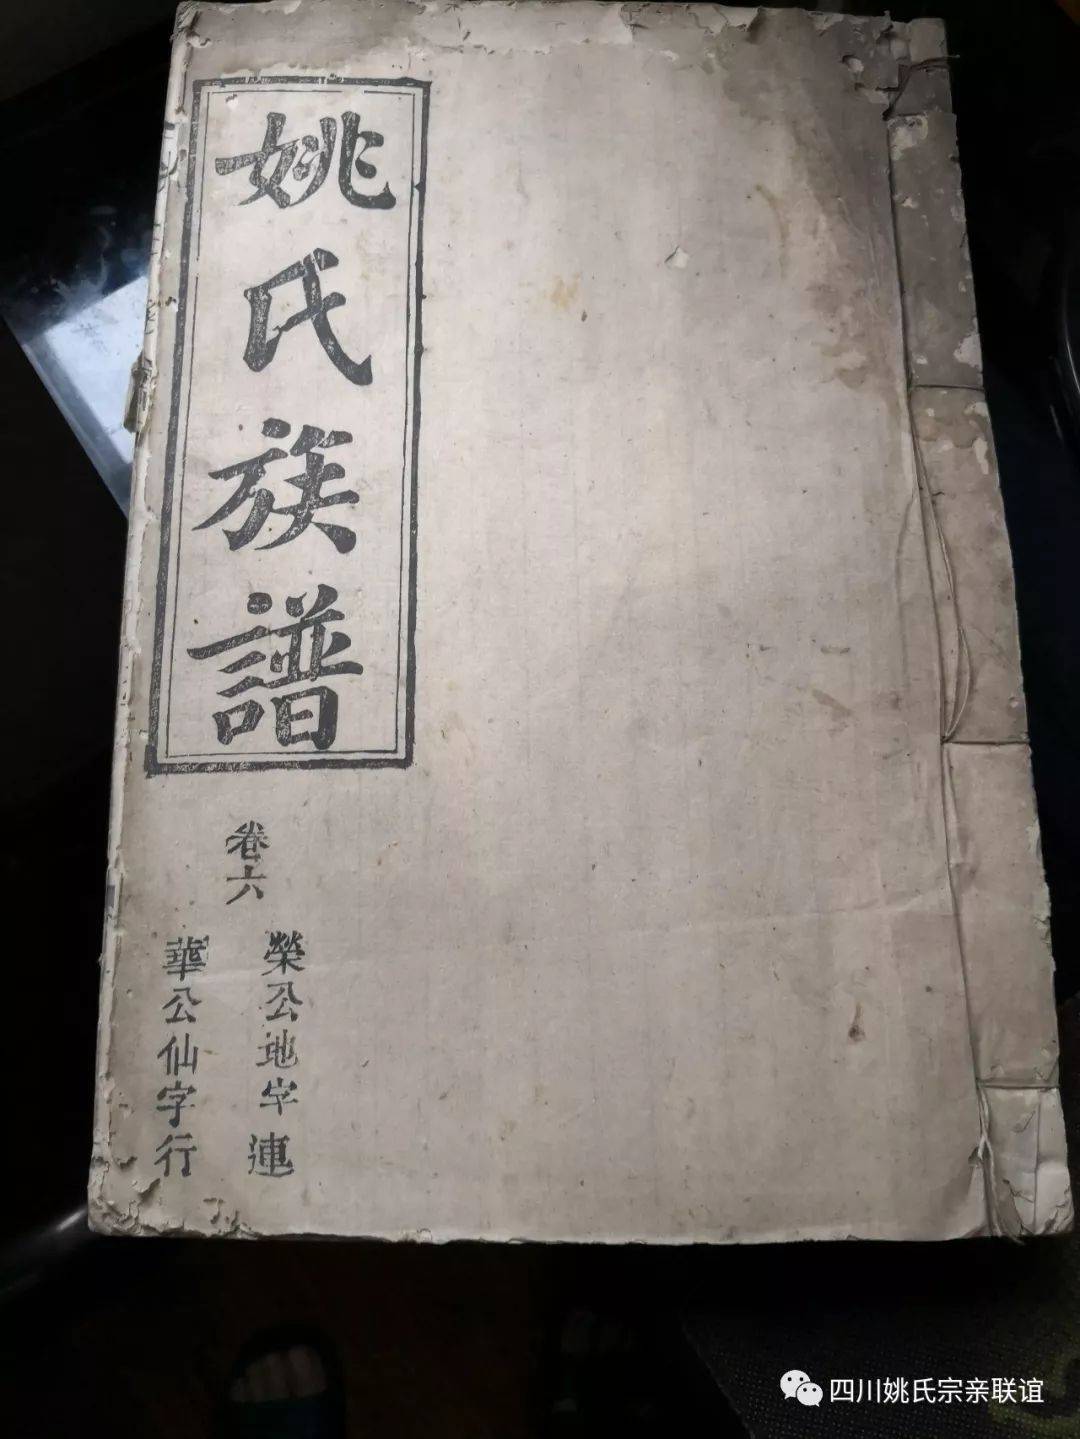 姚氏族譜
卷六
榮公地字 連
華公仙字行
四川姚氏宗亲联谊